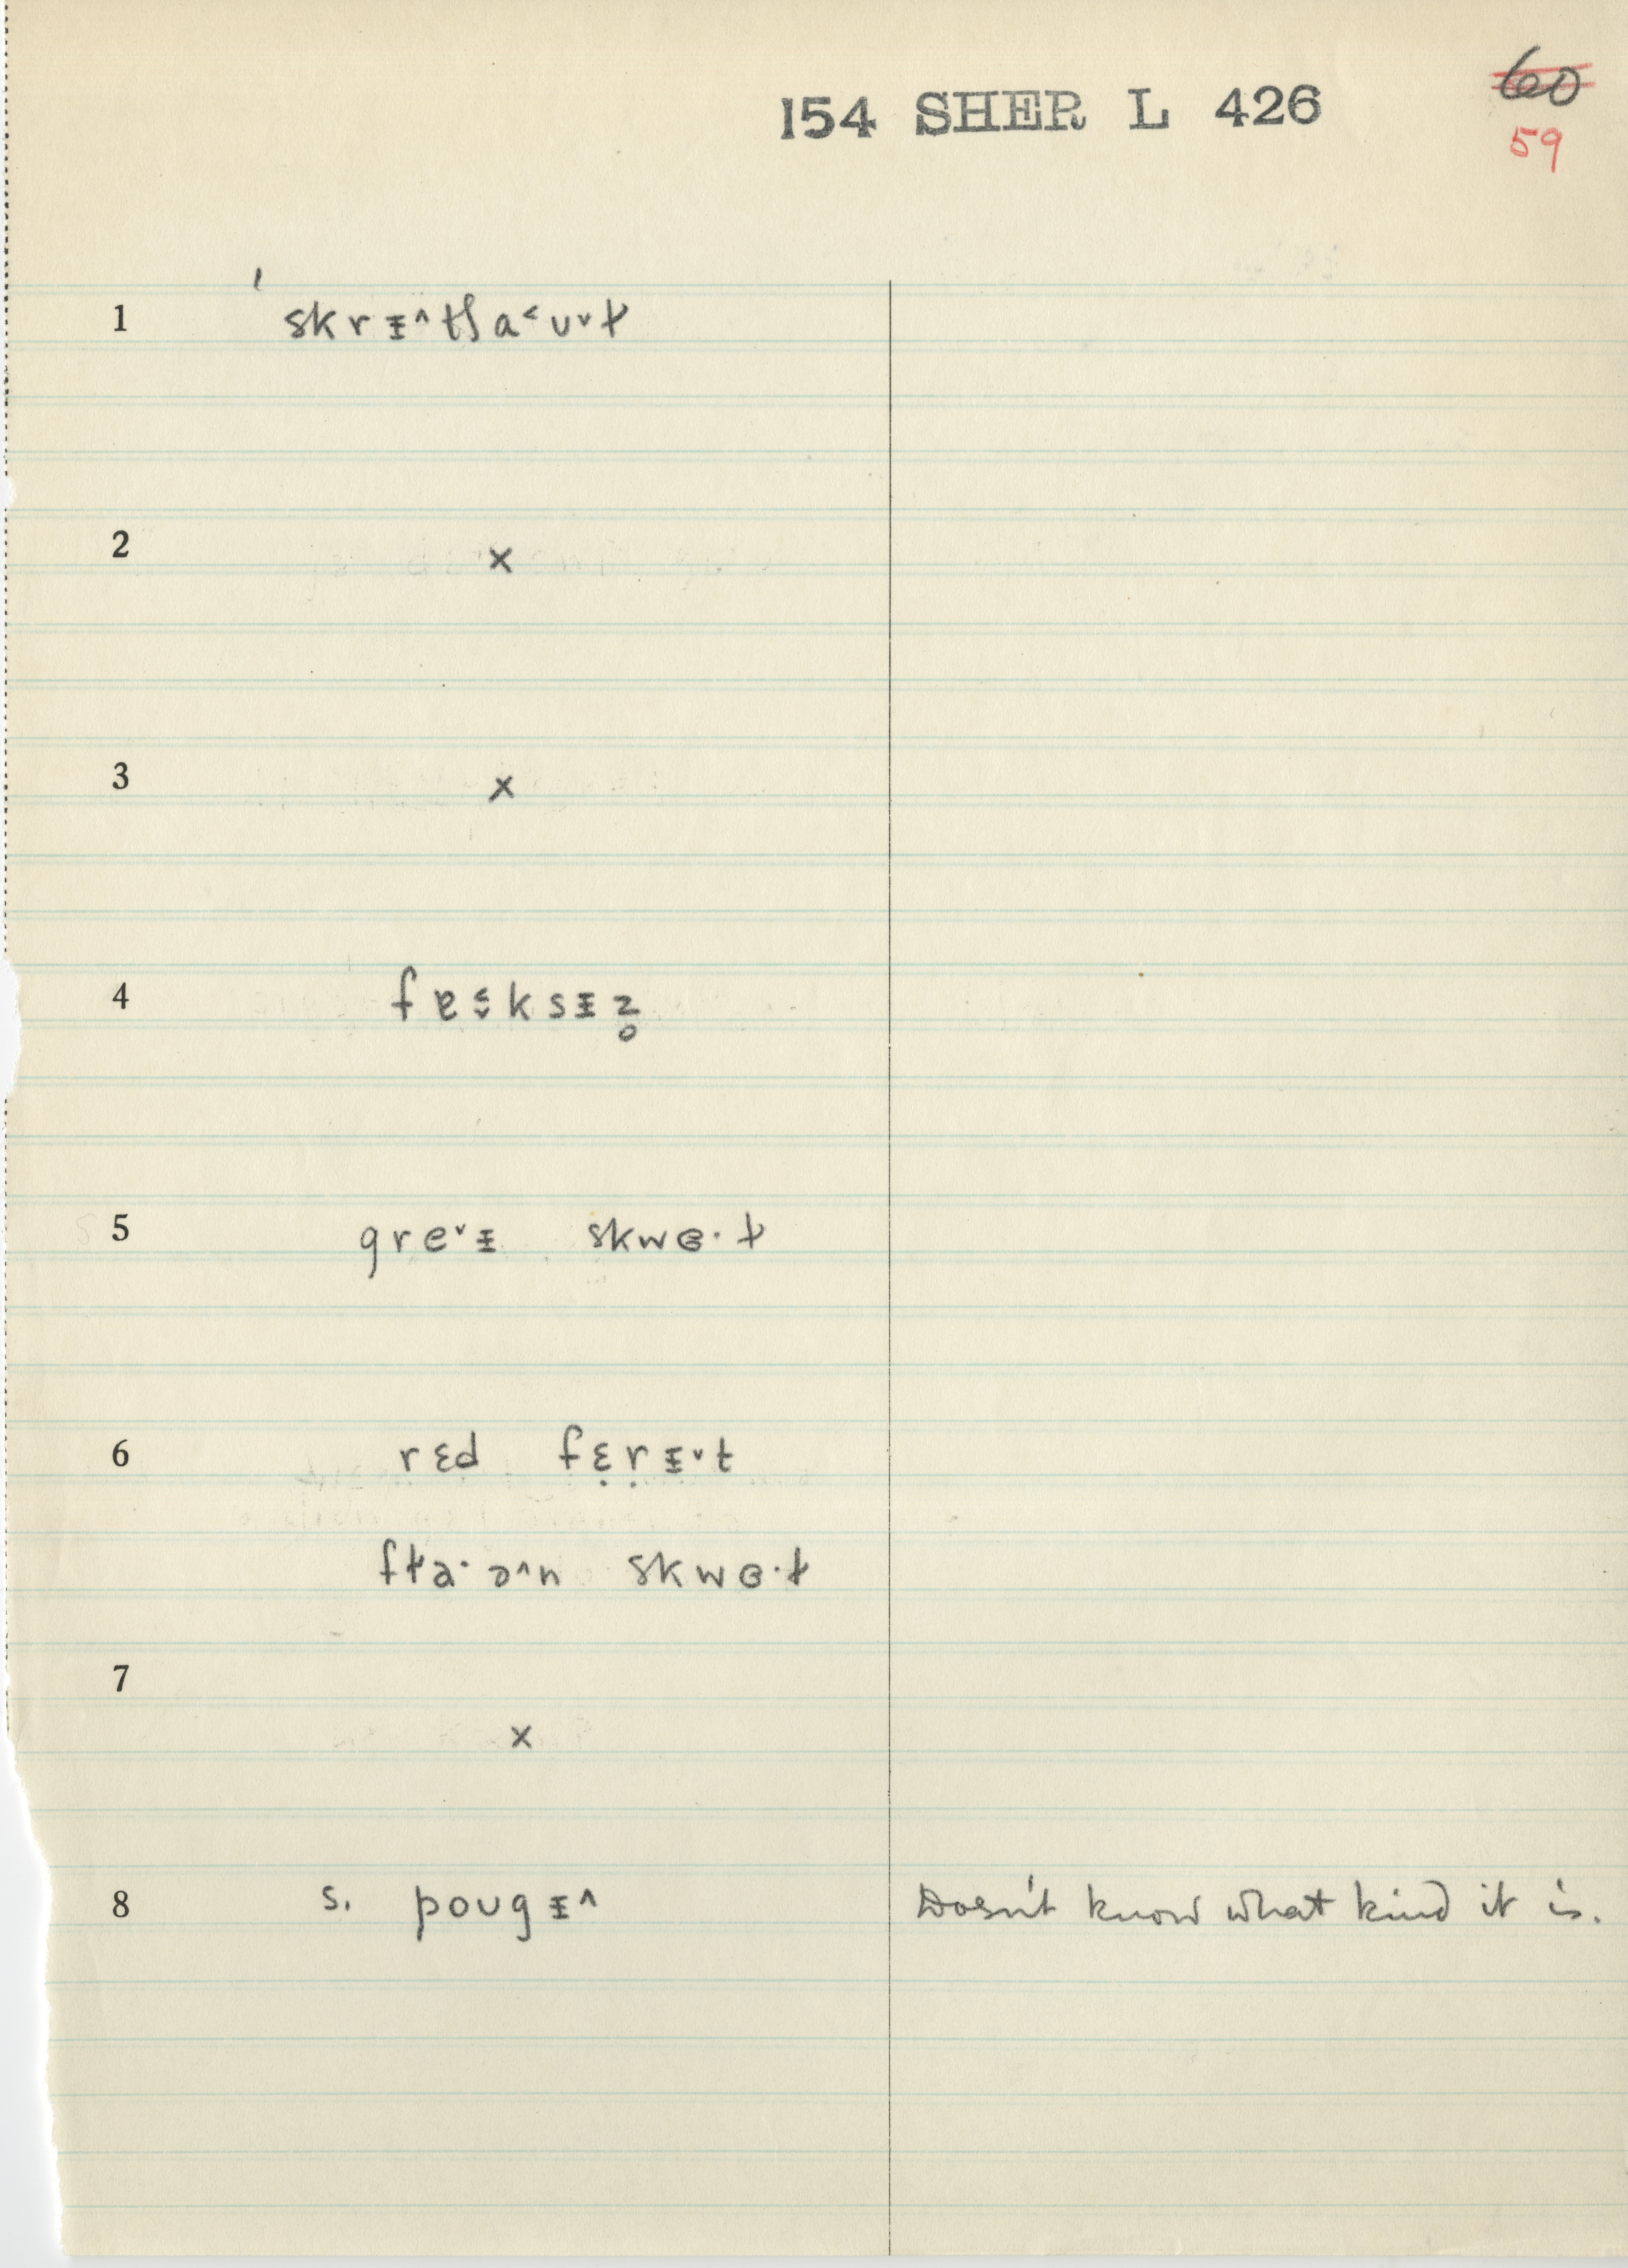 154 SHER L 426
60
59
1 ˈskrᵻ˄tʃa˂ʊ˅ɫ
2 x
3 x
4 fɐ˂˅ksᵻz̥
5 gre˅ᵻ skwɞ·ɫ
6 rɛd fɛ̣ṛᵻ˅t
fɫa·ə˄n skwɞ·ɫ
7
x
8 s. poʊgᵻ˄ Doesn't know what kind it is.